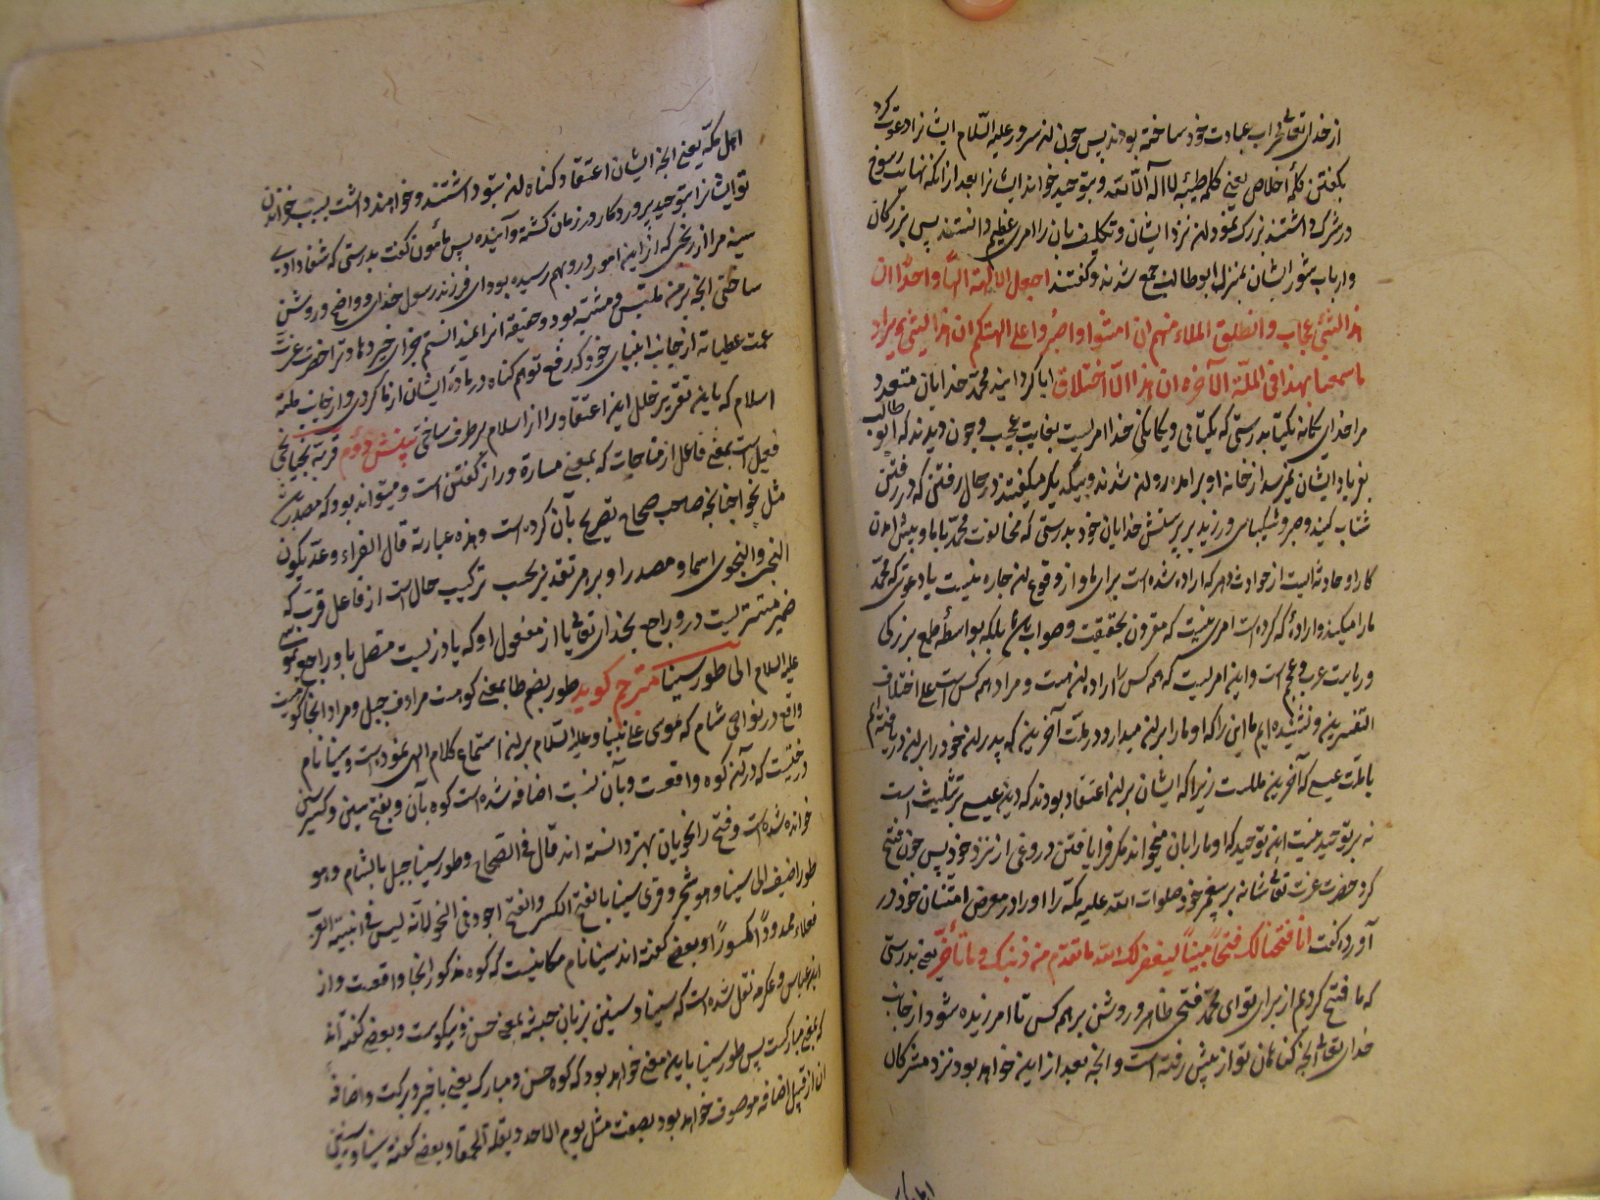 از خدای تعالی خراب عبادت خود ساخته بودند پس چون آن سرور علیه السلام ایشانرا دعوت کرد
بگفتن کلمهٔ اخلاص یعنی کلمه طیبه لا اله الا الله و بتوحید خواند ایشانرا بعد از آنکه نهایت رسوخ
در شرک داشتند بزرک نمود آن نزد ایشان و تکلیف بان را امری عظیم دانستند پس بزرکان
و ارباب شور ایشان بمنزل ابو طالب جمع شدند و گفتند اجعل الآلهة الها واحدا ان
هذا لشئ عجاب و انطلق الملاء منهم ان امشوا و اصبروا علی الهتکم ان هذا لشئ یراد
ما سمعنا بهذا فی الملة الآخرة ان هذا الا اختلاق ایا کردانید محمد خدایان متعدد
مر خدای یکانه یکتا بدرستی که یکتایی و یکانکی خدا امریست بغایت عجیب و چون دیدند که ابو طالب
بفریاد ایشان نمیرسد از خانه او برامده روانه شدند و بیکدیکر میگفتند در حال رفتن که در رفتن
شتاب کنید و صبر و شکیبایی ورزید بر پرستش خدایان خود بدرستی که مخالفت محمد با ما و پیش امدن
کار او حادثه ایست از حوادث دهر که اراده شده است برای ما و از وقوع آن چاره نیست یا دعوتی که محمد
ما را میکند و ارادهٔ که کرده است امری نیست که مقرون بحقیقت و صواب باشد بلکه بواسطهٔ طمع بزرکی
و ریاست عرب و عجم است و این امریست که همه کس را اراده آن هست و مراد همه کس است علی اختلاف
التفسیرین و نشنیده ایم ما این را که او ما را بر آن میدارد در ملت آخرین که پدران خود را بر آن دریافته ایم
یا ملت عیسی که آخرین ملل است زیرا که ایشان بر آن اعتقاد بودند که دین عیسی بر تثلیث است
نه بر توحید نیست این توحید که او ما را بان میخواند مکر فرا یافتن دروغی از نزد خود پس چون فتح
کرد حضرت عزت تعالی شانه بر پیغمبر خود صلوات الله علیه مکه را او را در معرض امتنان خود در
آورده گفت انا فتحنا لک فتحا مبینا لیغفر لک الله ما تقدم من ذنبک و ما تأخر یعنی بدرستی
که ما فتح کردیم از برای تو ای محمد فتحی ظاهر و روشن بر همه کس تا امرزیده شود از جانب
خدای تعالی آنچه کناهان تو از پیش رفته است و آنچه بعد از این خواهد بود نزد مشرکان
اهل مکه یعنی آنچه ایشان اعتقاد کناه آن بتو داشتند و خواهند داشت بسبب خواندن
تو ایشانرا بتوحید پروردکار در زمان کذشته و آینده پس مأمون گفت بدرستی که شفا دادی
سینه مرا از رنجی که از این امور در و بهم رسیده بود ای فرزند رسول خدای و واضح و روشن
ساختی آنچه بر من ملتبس و مشتبه بود و حقیقة انرا نمیدانستم بجزای خیر دهاد ترا حضرت عزت
عمت عطیاته از جانب انبیای خود که رفع توهم کناه در مادهٔ ایشان از ما کردی و از جانب ملت
اسلام که باین تقریر خلل این اعتقاد را از اسلام بر طرف ساختی بینش دوم قربه نجیا نجی
فعیل است بمعنی فاعل از مناجات که بمعنی مساره و راز گفتن است و میتواند بود که مصدر باشد
مثل نجوا چنانچه صاحب صحاح تصریح بآن کرده است و هذه عبارته قال الفراء و قد یکون
النجی و النجوی اسما و مصدرا و بر هر تقدیر بحسب ترکیب حال است از فاعل قرب که
ضمیر مستتریست در و راجع بخدای تعالی یا از مفعول او که یاد زیست متصل باو راجع بموسی
علیه السلام الی طور سینا مترجم کوید طور بضم طا بمعنی کوهست مرادف جبل و مراد انجا کوهیست
واقع در نواحی شام که موسی علی نبینا و علیه السلام بر آن استماع کلام الهی نموده است و سینا نام
درختیست که در آن کوه واقعست و بآن نسبت اضافه شده است کوه بآن و بفتح سین و کسر سین
خوانده شده است و فتح را نحویان بهتر دانسته اند قال فی الصحاح و طور سینا جبل بالشام و هو
طور اضیف الی سینا و هو شجر و قری سینا بالفتح و الکسر و الفتح اجود فی النحو لانه لیس فی ابنیة العرب
فعلاء ممدودا مکسورا و بعضی گفته اند سینا نام مکانیست که کوه مذکور انجا واقعست و از
ابن عباس و عکرمه نقل شده است که سینا و سینین بزبان حبشه بمعنی حسن و نیکوست و بعضی گفته اند
که بمعنی مبارکست پس طور سینا باین معنی خواهد بود که کوه حسن و مبارک یعنی با خیر و برکت و اضافه
ان از قبیل اضافه موصوف خواهد بود بصفت مثل یوم الاحد و بقلة الحمقا و بعضی گفته سینا و سینین